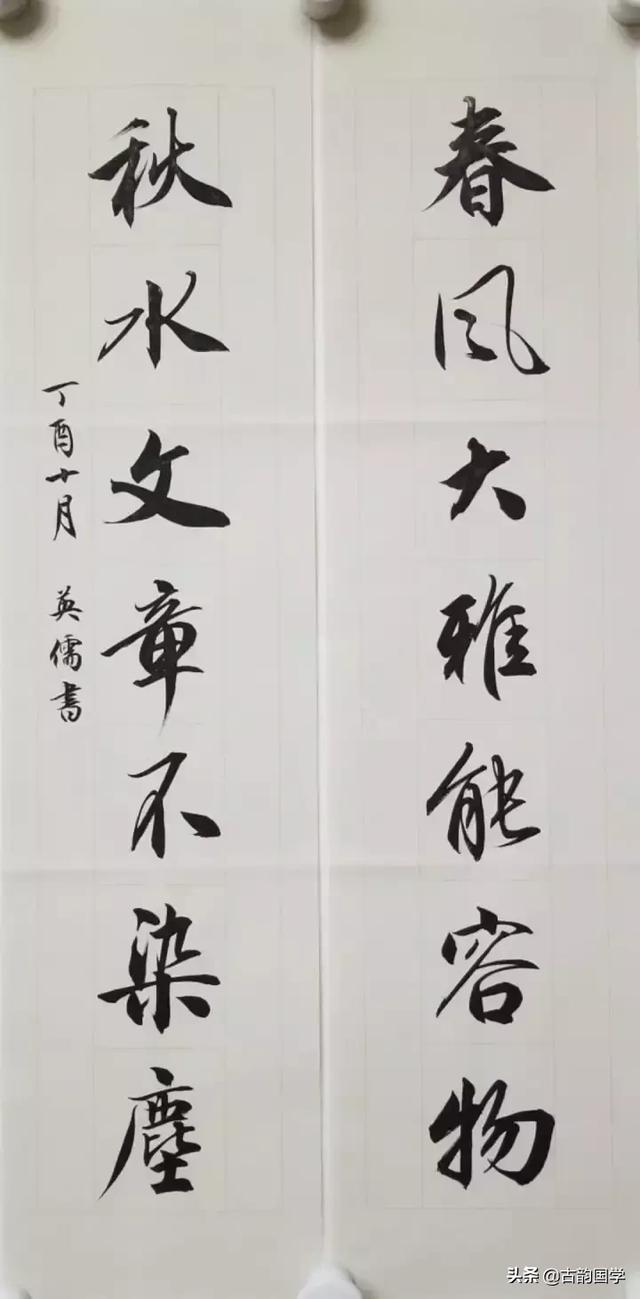 春风大雅能容物
秋水文章不染塵
丁酉十月 英儒書
头条 @古韵国学